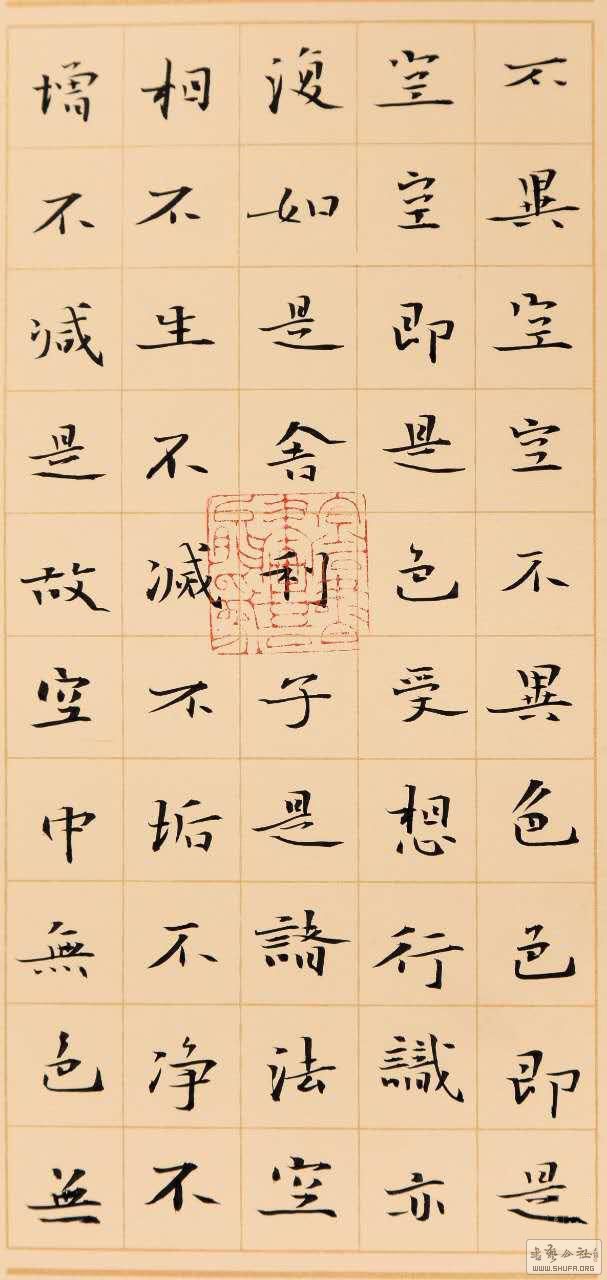 不異空空不異色色即是
空空即是色受想行識亦
復如是舍利子是諸法空
相不生不滅不垢不净不
增不減是故空中無色無
WWW.SHUFA.ORG